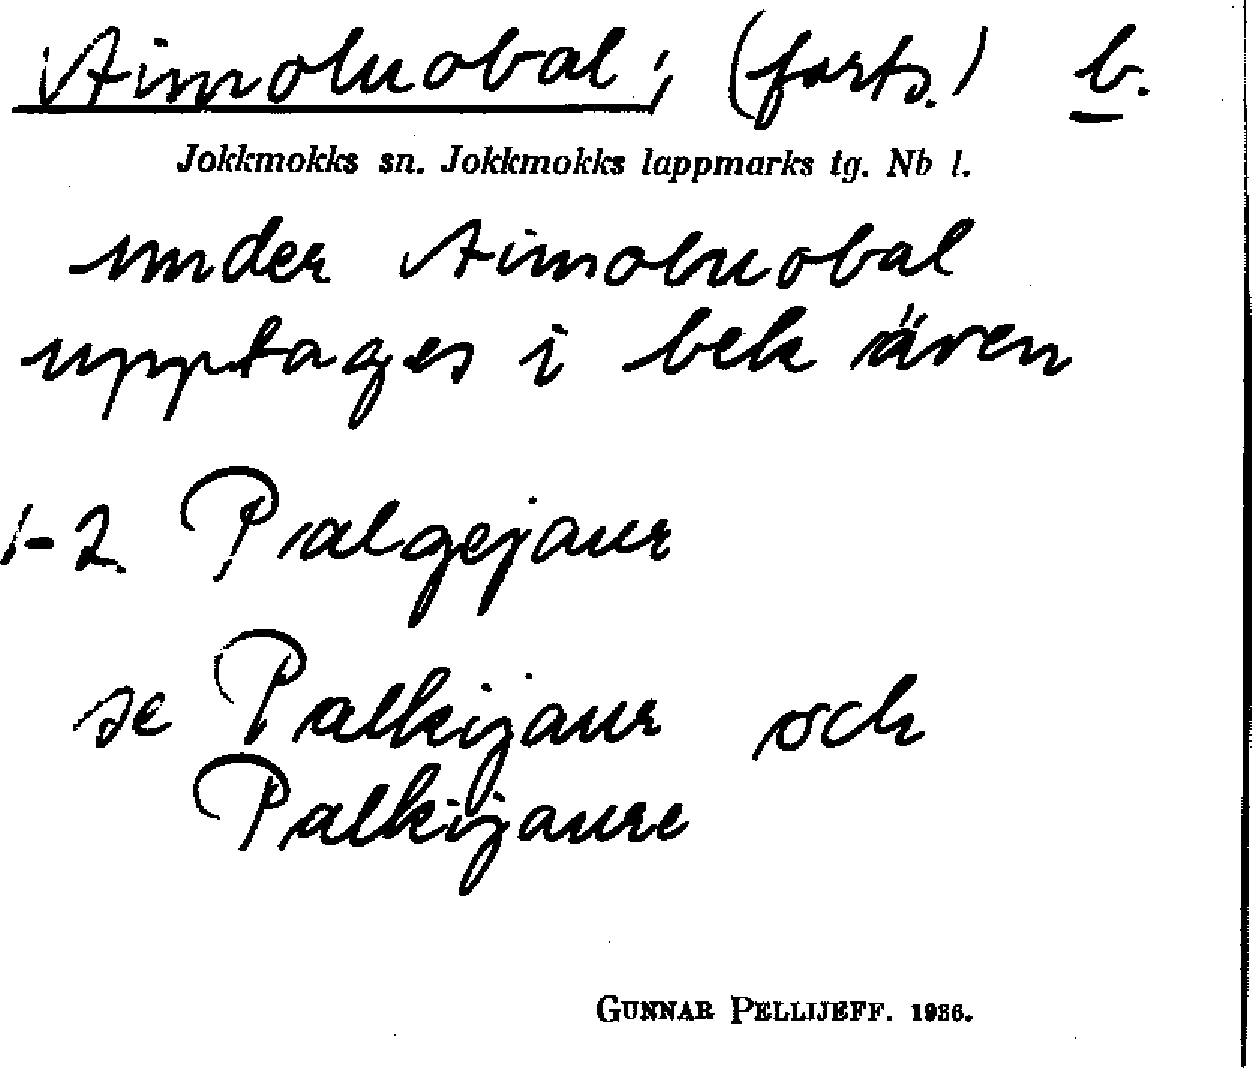 Aimoluobal; (forts.) b.
Jokkmokks sn. Jokkmokks lappmarks tg. Nb l.
under Aimoluobal
upptages i bek även
1-2 Palgejaur
se Palkijaur och
Palkijaure
GUNNAR PELLIJEFF. 1936.